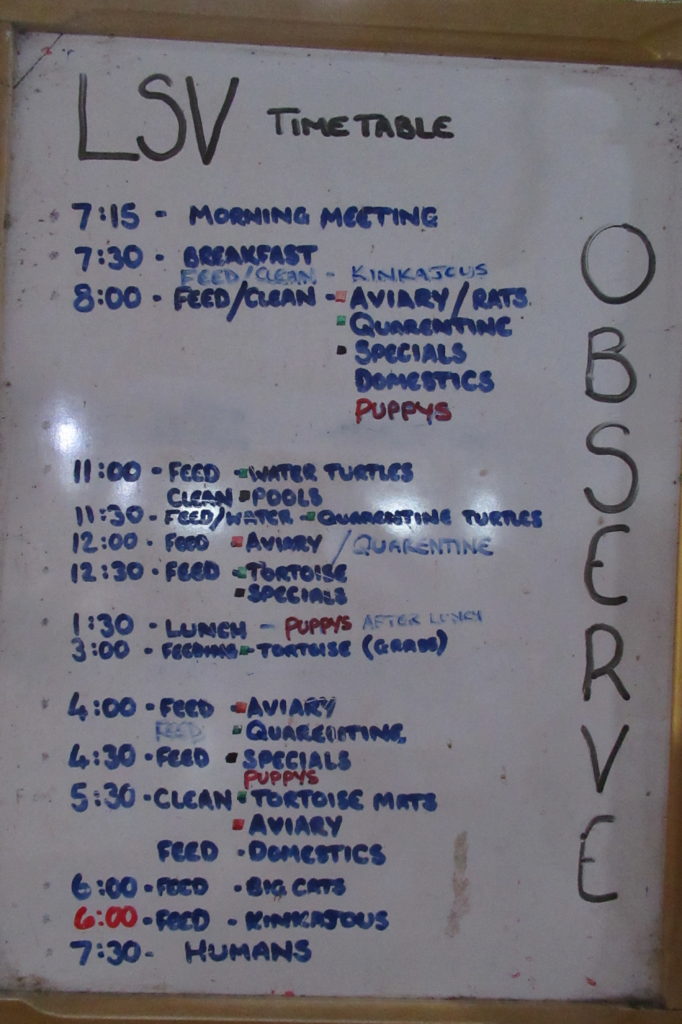 LSV TIMETABLE
7:15 - MORNING MEETING
7:30 - BREAKFAST
FEED/CLEAN - KINKAJOUS
8:00 - FEED/CLEAN - AVIARY/RATS
QUARENTINE
SPECIALS
DOMESTICS
PUPPYS
11:00 - FEED - WATER TURTLES
CLEAN POOLS
11:30 - FEED/WATER - QUARENTINE TURTLES
12:00 - FEED AVIARY / QUARENTINE
12:30 - FEED - TORTOISE
SPECIALS
1:30 - LUNCH - PUPPYS AFTER LUNCH
3:00 - FEEDING - TORTOISE (GRASS)
4:00 - FEED - AVIARY
FEED QUARENTINE
4:30 - FEED SPECIALS
PUPPYS
5:30 - CLEAN - TORTOISE MATS
AVIARY
FEED - DOMESTICS
6:00 - FEED - BIG CATS
6:00 - FEED - KINKAJOUS
7:30 - HUMANS
OBSERVE